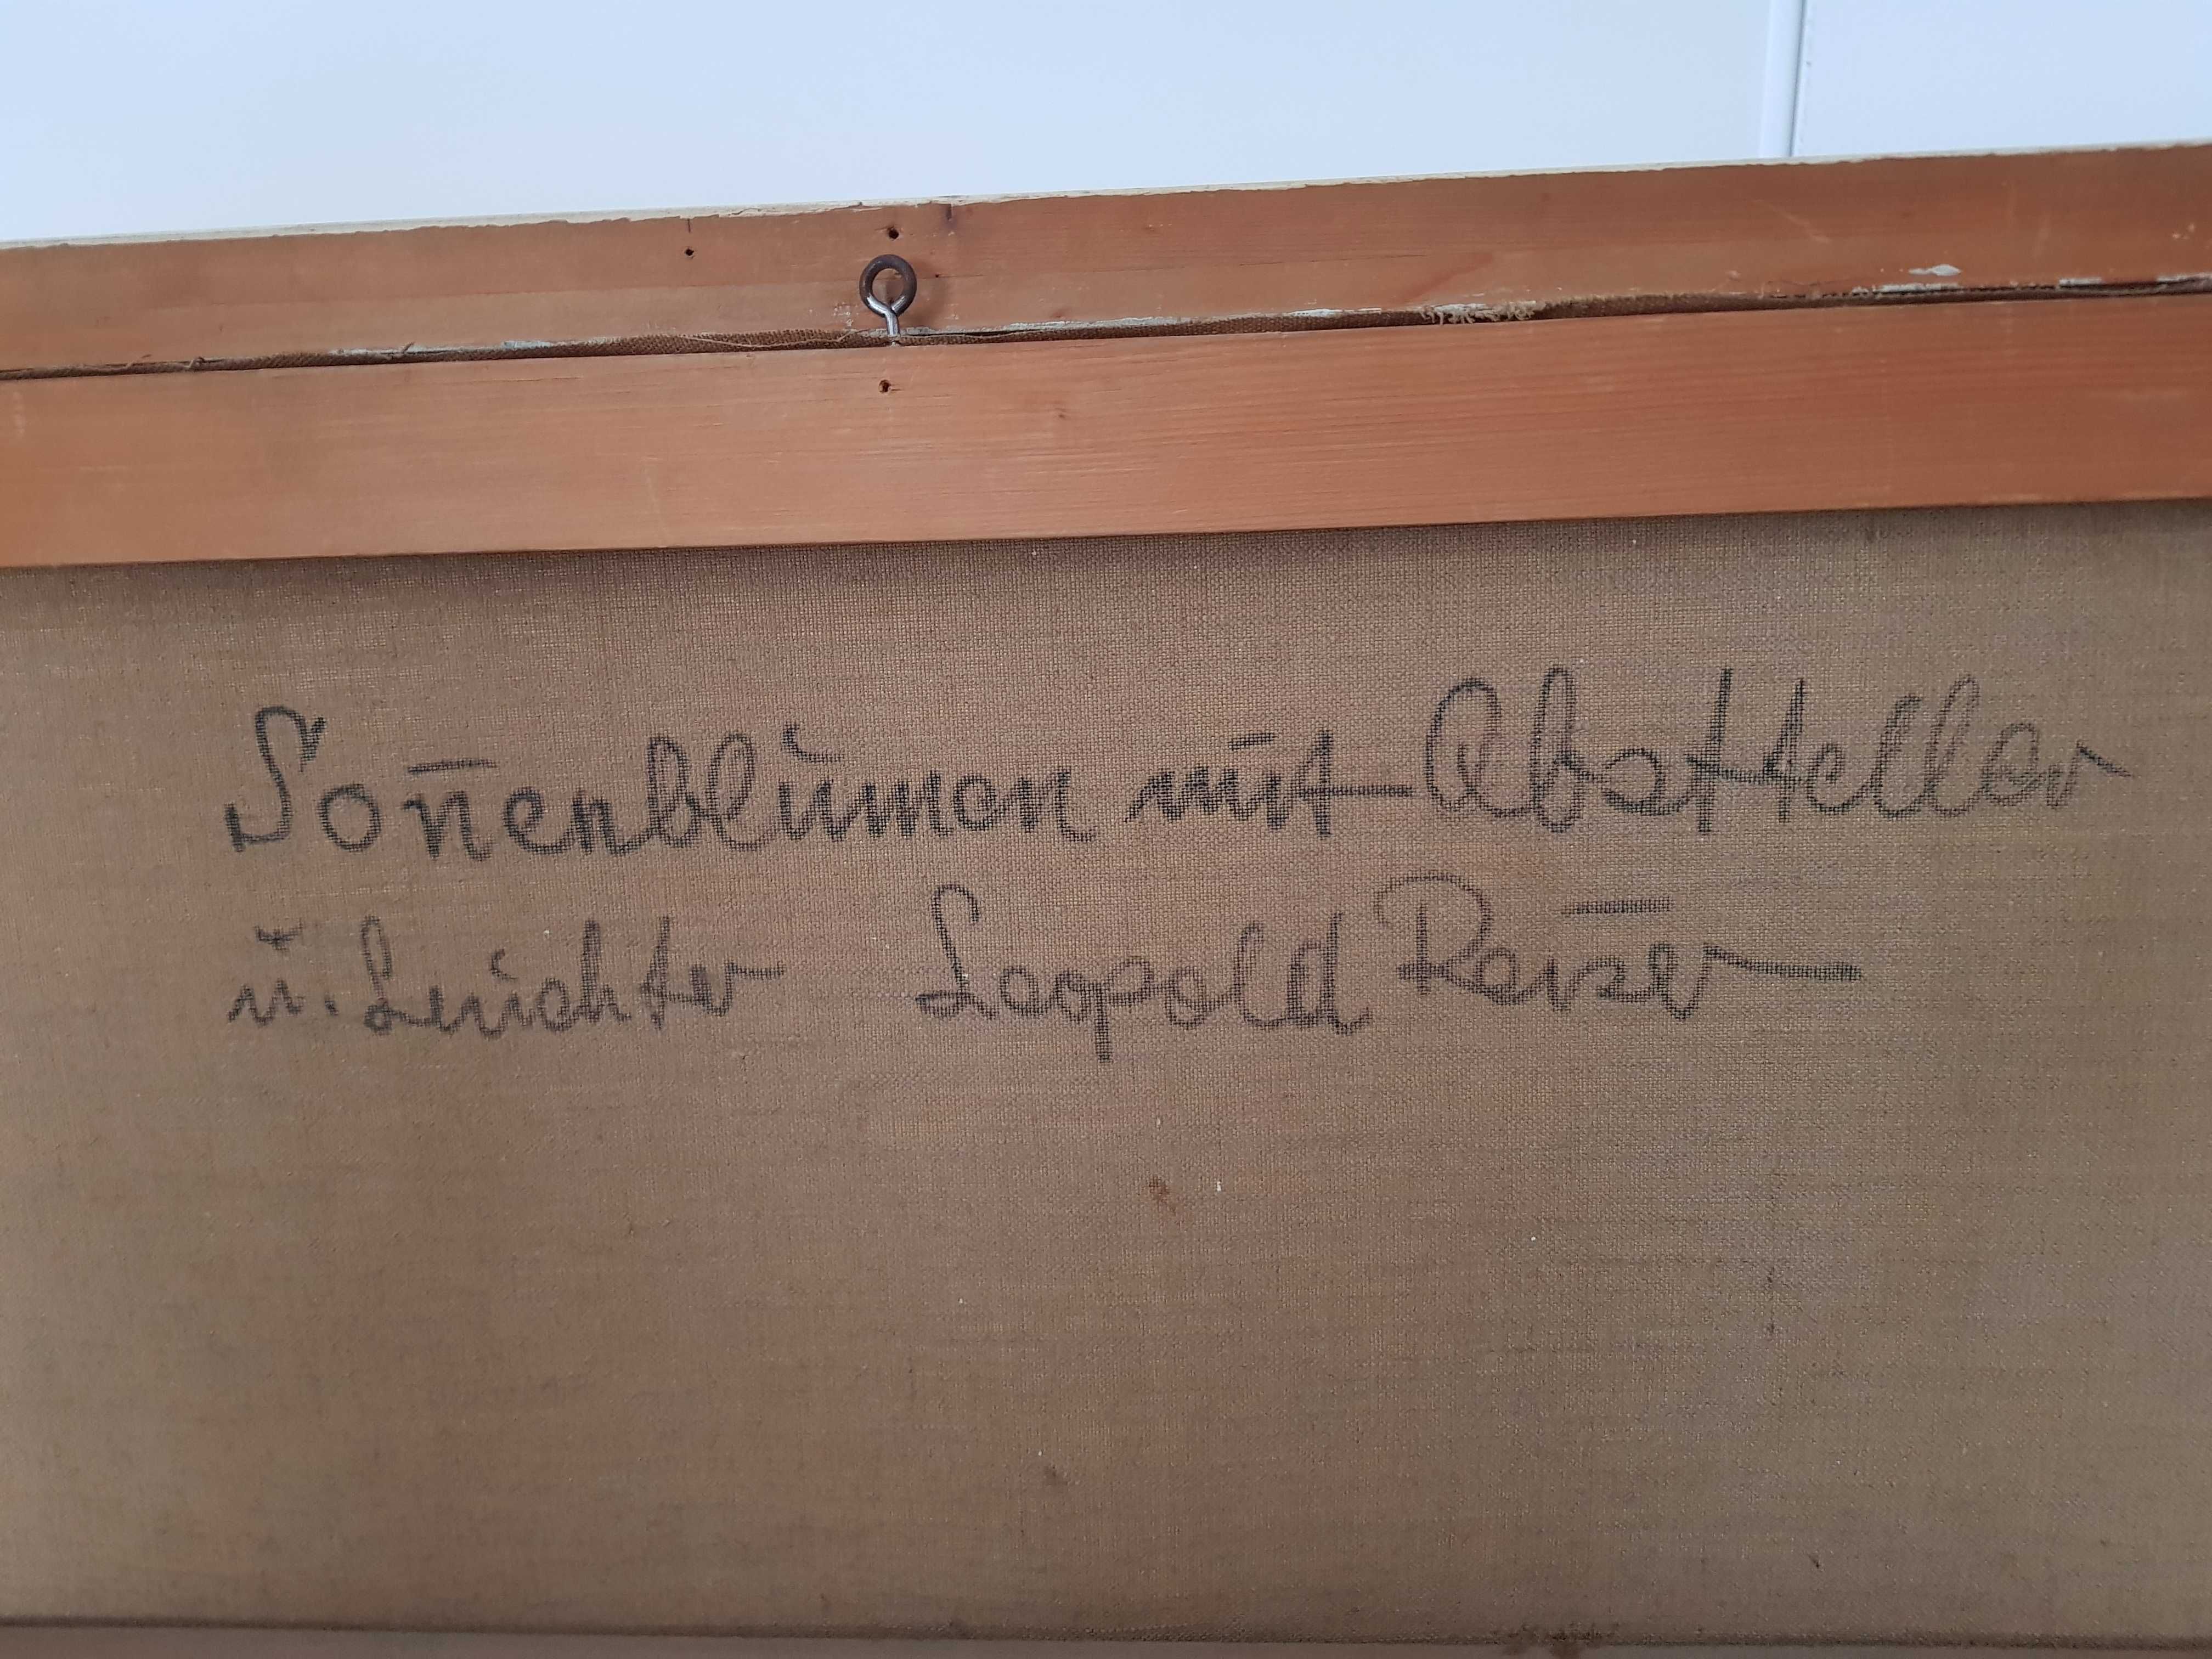 Son̄enblumen mit Obstteller
u. Leuchter Leopold Reiser